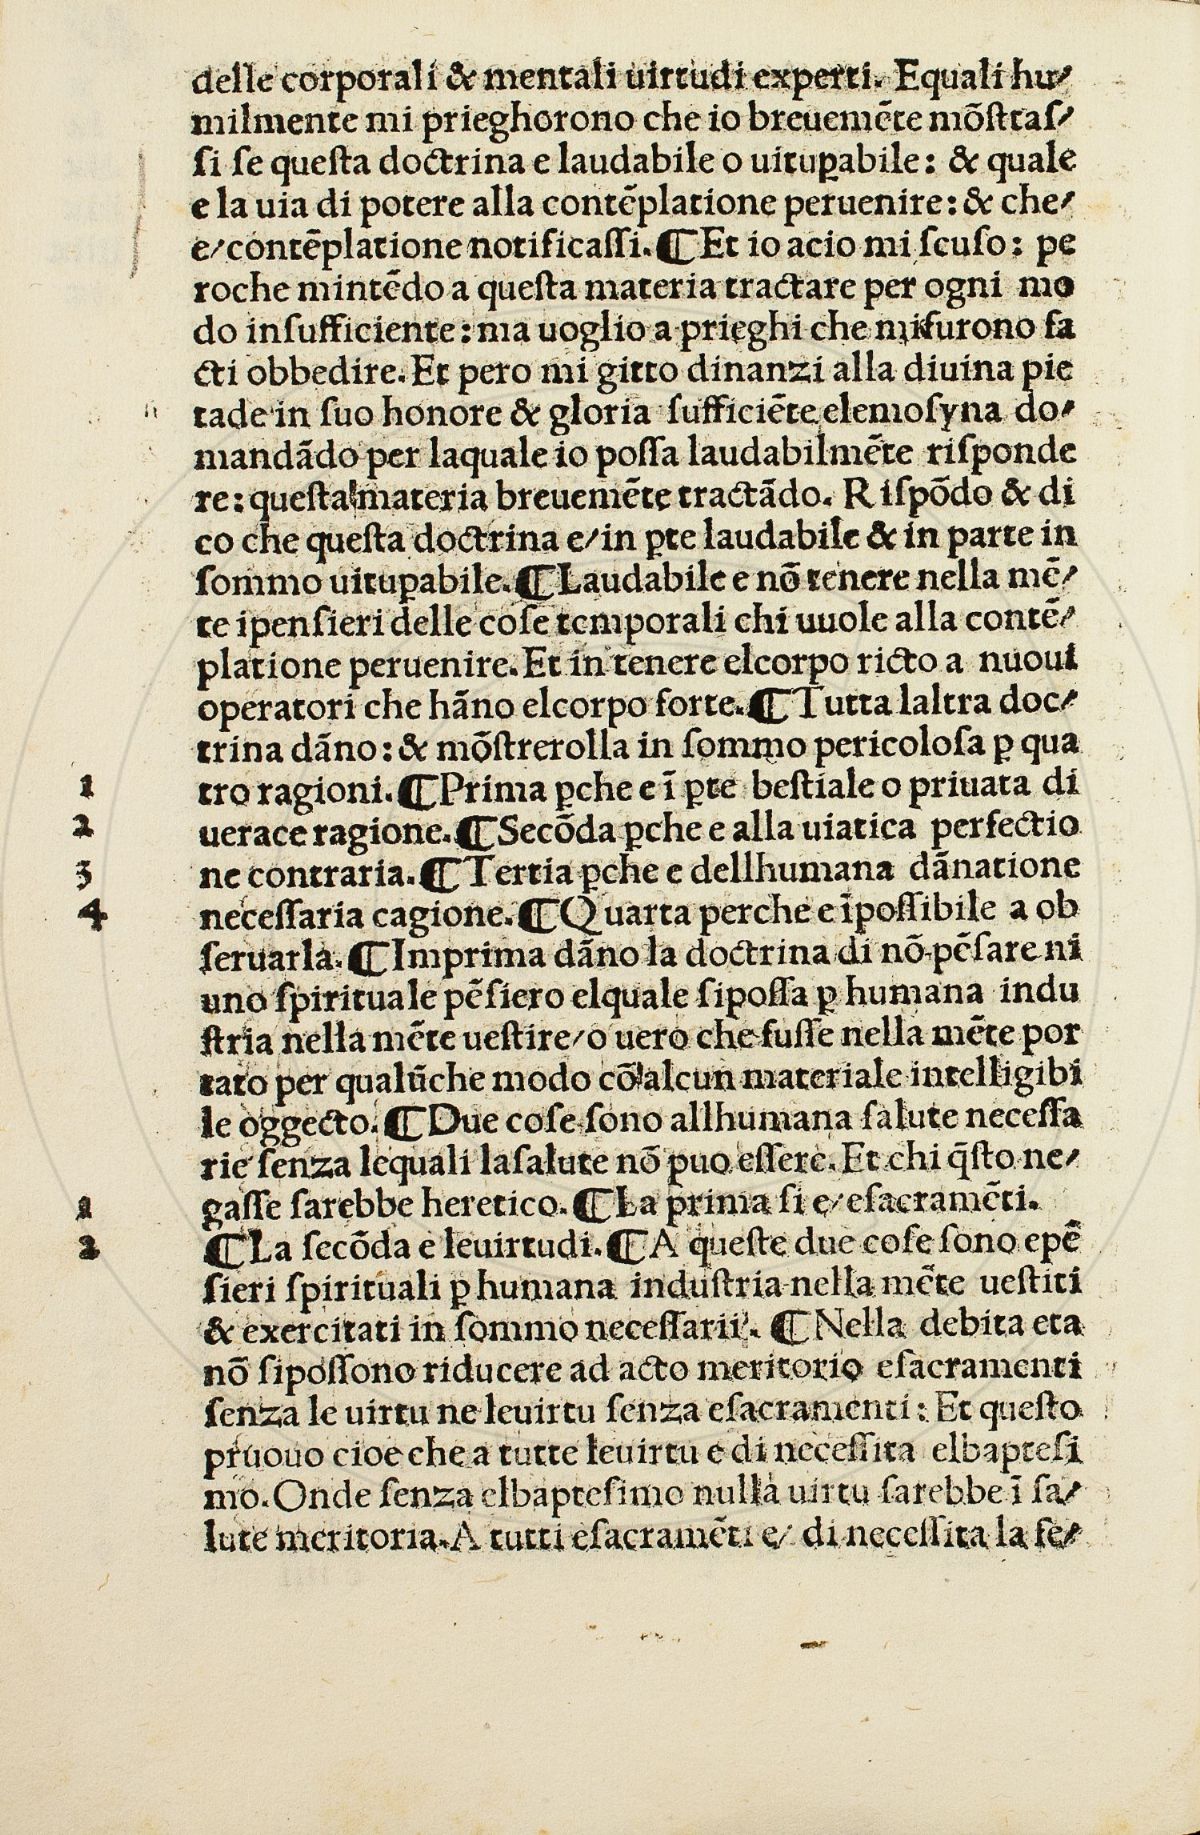 delle corporali & mentali uirtudi experti. Equali hu⸗
milmente mi prieghorono che io breuemēte mōſtraſ⸗
ſi ſe queſta doctrina e laudabile o uituꝑabile: & quale
e la uia di potere alla contēplatione peruenire: & che⸗
e/contēplatione notificaſſi. ¶ Et io acio mi ſcuſo: pe
roche mintēdo a queſta materia tractare per ogni mo
do inſufficiente: ma uoglio a prieghi che mi furono fa
cti obbedire. Et pero mi gitto dinanzi alla diuina pie
tade in ſuo honore & gloria ſufficiēte elemoſyna do⸗
mandādo per laquale io poſſa laudabilmēte riſponde
re: queſta materia breuemēte tractādo. Riſpōdo & di
co che queſta doctrina e/in ꝑte laudabile & in parte in
ſommo uituꝑabile. ¶ Laudabile e nō tenere nella mē⸗
te ipenſieri delle coſe temporali chi uuole alla contē⸗
platione peruenire. Et in tenere elcorpo ricto a nuoui
operatori che hāno elcorpo forte. ¶ Tutta laltra doc⸗
trina dāno: & mōſtrerolla in ſommo pericoloſa ꝑ qua
1 tro ragioni. ¶ Prima ꝑche e ī ꝑte beſtiale o priuata di
2 uerace ragione. ¶ Secōda ꝑche e alla uiatica perfectio
3 ne contraria. ¶ Tertia ꝑche e dellhumana dānatione
4 neceſſaria cagione. ¶ Quarta perche e īpoſſibile a ob
ſeruarla. ¶ Imprima dāno la doctrina di nō pēſare ni
uno ſpirituale pēſiero elquale ſipoſſa ꝑ humana indu
ſtria nella mēte ueſtire/o uero che fuſſe nella mēte por
tato per qualūche modo cō alcun materiale intelligibi
le oggecto. ¶ Due coſe ſono allhumana ſalute neceſſa
rie ſenza lequali laſalute nō puo eſſere. Et chi q̄ſto ne⸗
1 gaſſe ſarebbe heretico. ¶ La prima ſi e/eſacramēti.
2 ¶ La ſecōda e leuirtudi. ¶ A queſte due coſe ſono epē
ſieri ſpirituali ꝑ humana induſtria nella mēte ueſtiti
& exercitati in ſommo neceſſarii. ¶ Nella debita eta
nō ſipoſſono riducere ad acto meritorio eſacramenti
ſenza le uirtu ne leuirtu ſenza eſacramenti: Et queſto
pruouo cioe che a tutte leuirtu e di neceſſita elbapteſi
mo. Onde ſenza elbapteſimo nulla uirtu ſarebbe ī ſa⸗
lute meritoria. A tutti eſacramēti e/ di neceſſita la fe⸗